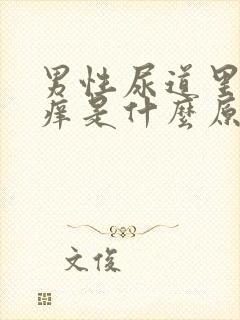 男性尿道里
痒是什麼原
文俊